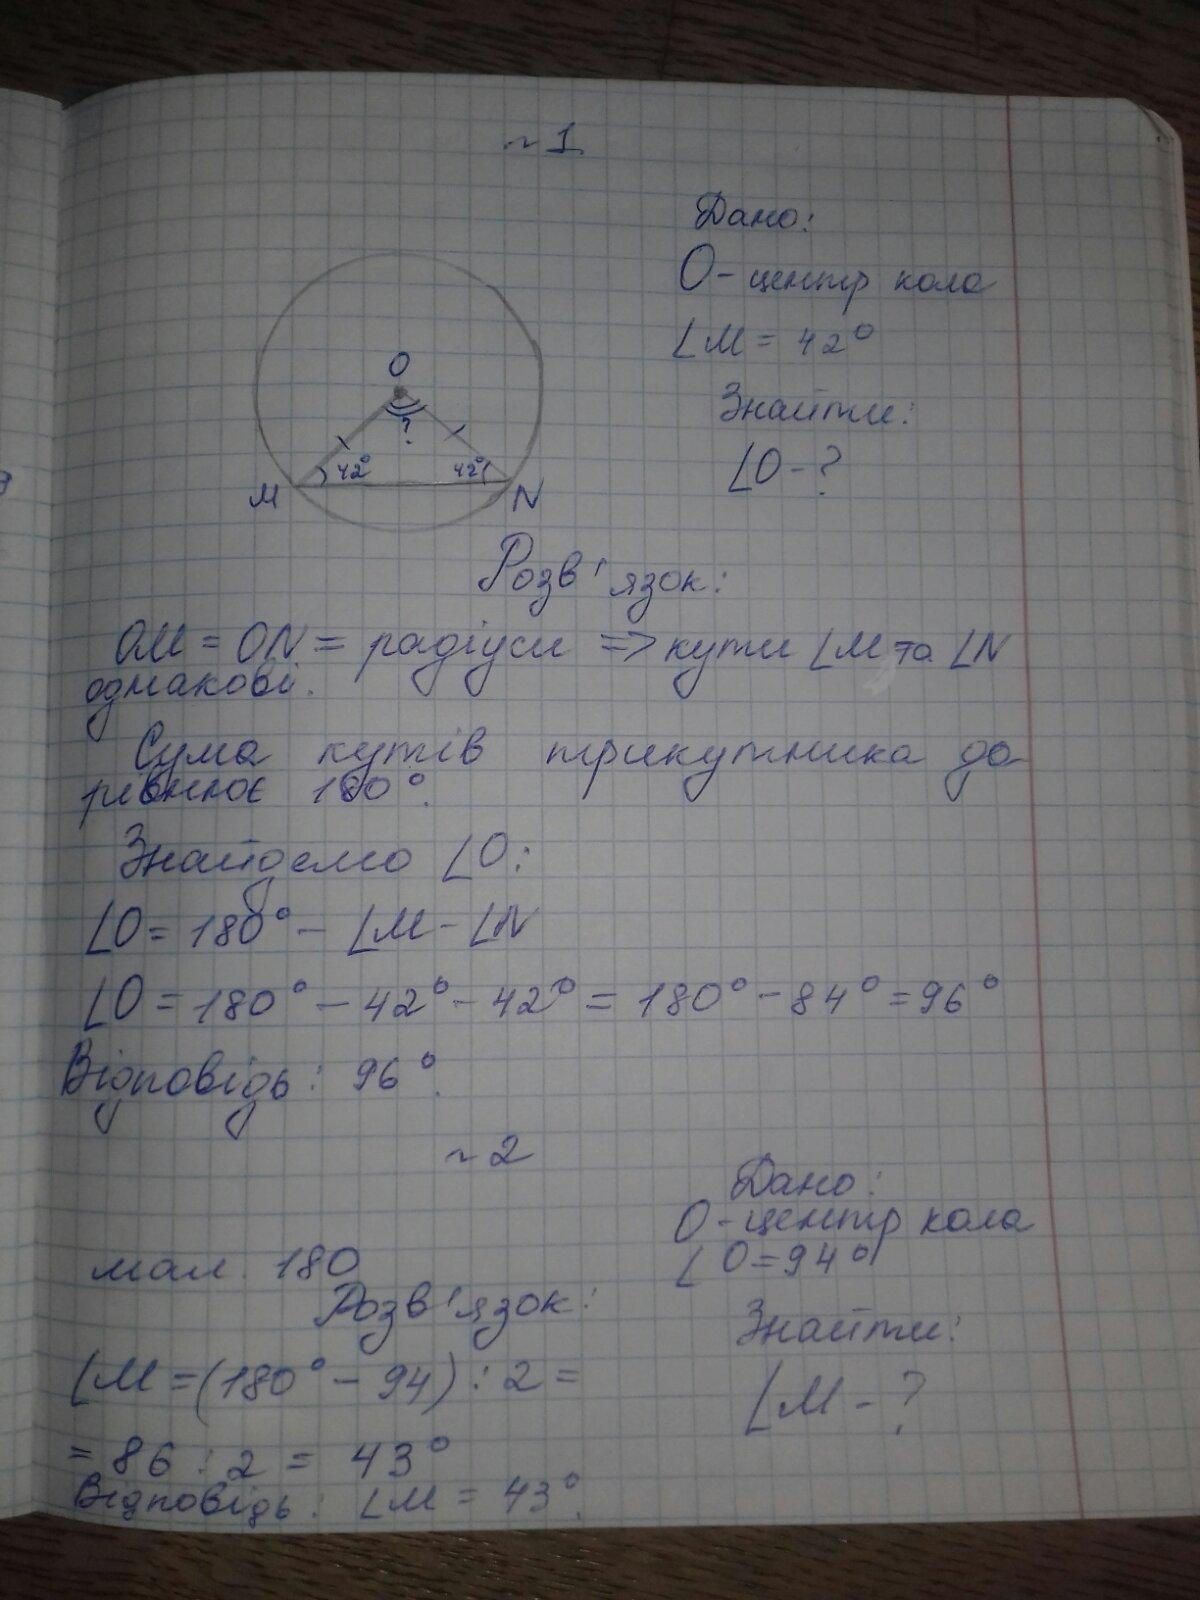 ~1
Дано:
O - центр кола
∠M = 42°
Знайти:
∠O - ?
O
?
42° 42°
M N
Розв'язок:
OM = ON = радіуси => кути ∠M та ∠N
однакові.
Сума кутів трикутника до
рівнює 180°.
Знайдемо ∠O:
∠O = 180° - ∠M - ∠N
∠O = 180° - 42° - 42° = 180° - 84° = 96°
Відповідь: 96°.
~2
Дано:
O - центр кола
∠O = 94°
мал. 180
Розв'язок:
Знайти:
∠M - ?
∠M = (180° - 94) : 2 =
= 86 : 2 = 43°
Відповідь: ∠M = 43°.